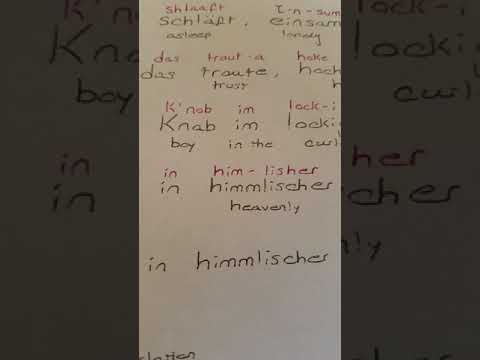 shlaaft I-n-sum
schläft, einsam
asleep lonely
das traut-a hoke
das traute, hoch
trust
K'nob im lock-i
Knab im locki
boy in the curl
in him-lisher
in himmlischer
heavenly
in himmlischer